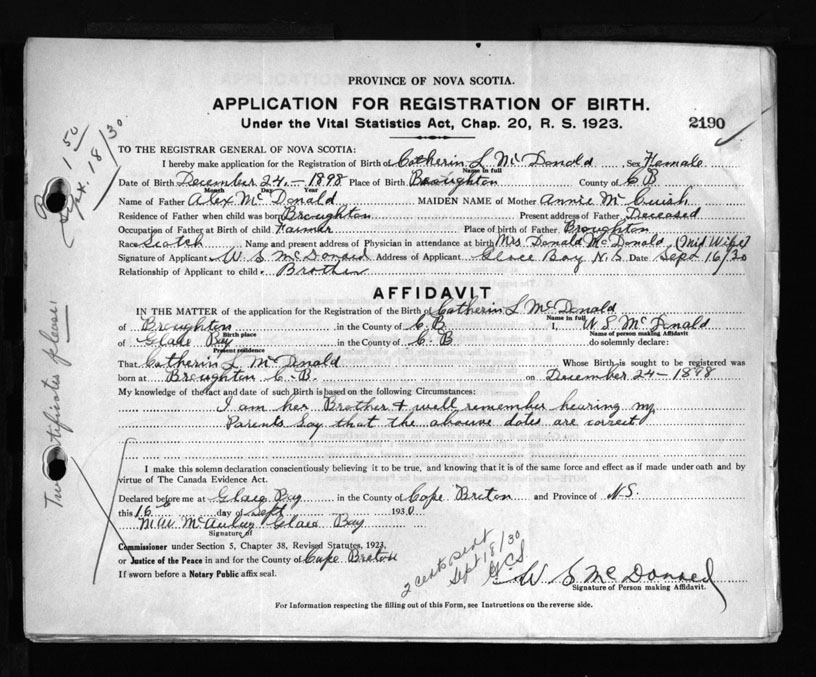 PROVINCE OF NOVA SCOTIA.
APPLICATION FOR REGISTRATION OF BIRTH.
Under the Vital Statistics Act, Chap. 20, R. S. 1923.
2190
TO THE REGISTRAR GENERAL OF NOVA SCOTIA:
I hereby make application for the Registration of Birth of Catherin L McDonald Sex Female
Name in full
Date of Birth December 24 - 1898 Place of Birth Broughton County of C B
Month Day Year
Name of Father Alex McDonald MAIDEN NAME of Mother Annie McCuish
Residence of Father when child was born Broughton Present address of Father Deceased
Occupation of Father at Birth of child Farmer Place of birth of Father Broughton
Race Scotch Name and present address of Physician in attendance at birth Mrs Donald McDonald (Mid Wife)
Signature of Applicant W S McDonald Address of Applicant Glace Bay N.S. Date Sept 16/30
Relationship of Applicant to child. Brother
AFFIDAVIT
IN THE MATTER of the application for the Registration of the Birth of Catherin L McDonald
Name in full
of Broughton in the County of C.B. I, W S McDnald
Birth place Name of person making Affidavit
of Glace Bay in the County of C B do solemnly declare:
Present residence
That Catherin L McDnald Whose Birth is sought to be registered was
born at Broughton C.B. on December 24 - 1898
My knowledge of the fact and date of such Birth is based on the following Circumstances:
I am her Brother & well remember hearing my
Parents Say that the abouve dates are correct
I make this solemn declaration conscientiously believing it to be true, and knowing that it is of the same force and effect as if made under oath and by
virtue of The Canada Evidence Act.
Declared before me at Glace Bay in the County of Cape Breton and Province of N.S.
this 16 day of Sept 1930
Glace Bay
Signature of
Commissioner under Section 5, Chapter 38, Revised Statutes, 1923,
or Justice of the Peace in and for the County of Cape Breton
If sworn before a Notary Public affix seal.
2 certs sent
Sept 18/30
W S McDonald
Signature of Person making Affidavit.
For Information respecting the filling out of this Form, see Instructions on the reverse side.
1.50
Sept. 18/30
certificates please